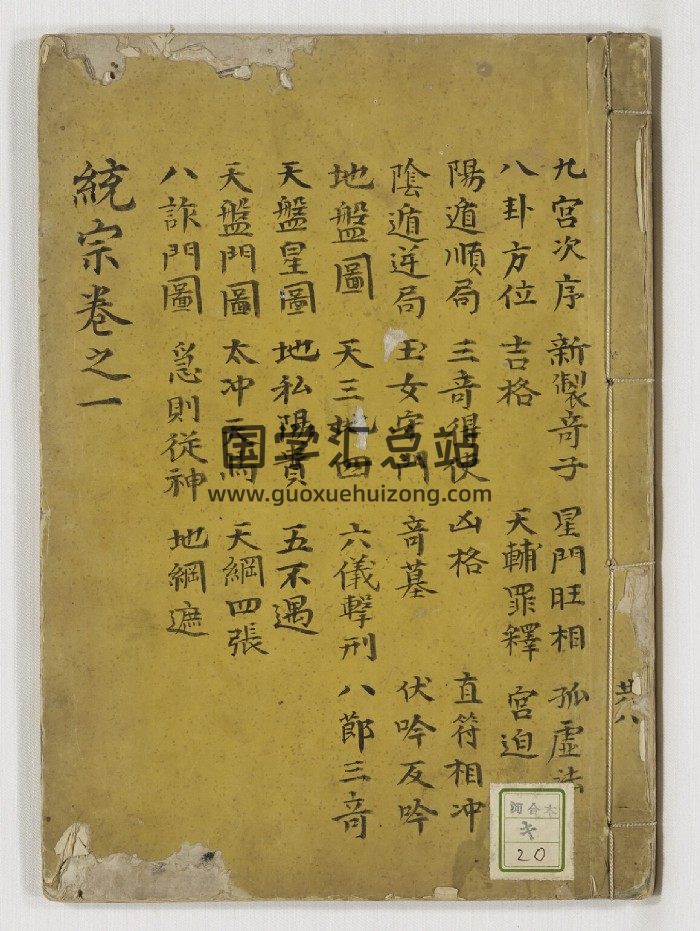 九宮次序 新製竒子 星門旺相 孤虛法
八卦方位 吉格 天輔罪釋 宮迫
陽遁順局 三竒得使 凶格 直符相冲
陰遁逆局 玉女守門 竒墓 伏吟反吟
地盤圖 天三地四 六儀擊刑 八節三竒
天盤星圖 地私陽貴 五不遇
天盤門圖 太冲天馬 天綱四張
八詐門圖 急則從神 地綱遮
統宗卷之一
共八
国学汇总站
www.guoxuehuizong.com
河合本
キ
20